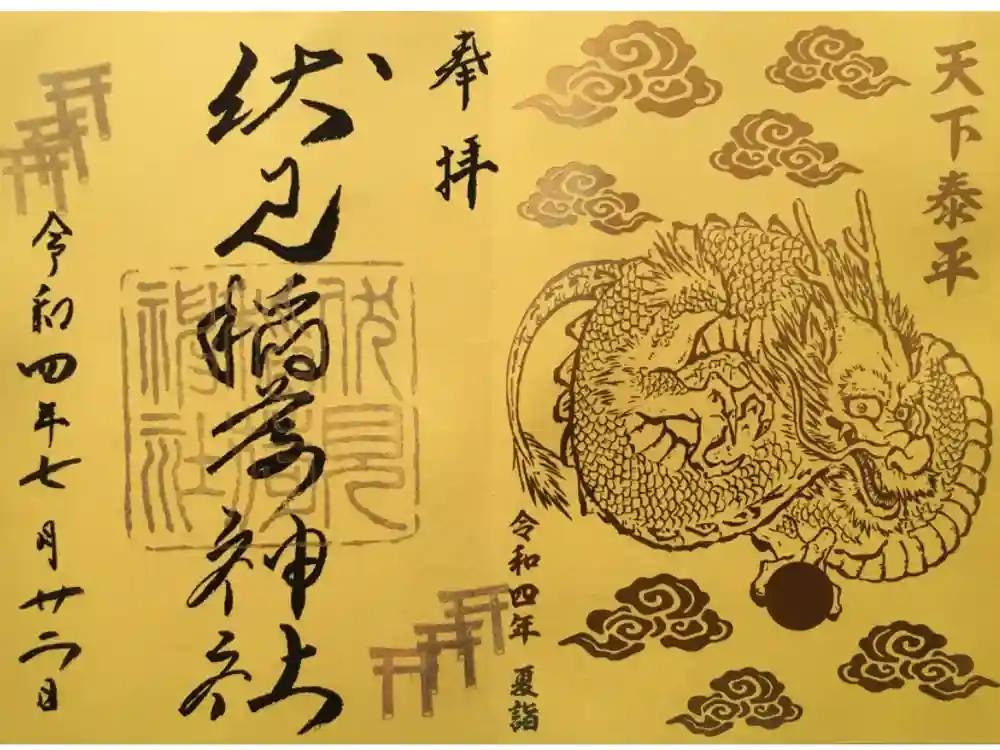 天下泰平
令和四年 夏詣
奉拝
伏見稲荷神社
伏見
稲荷
神社
令和四年七月廿二日